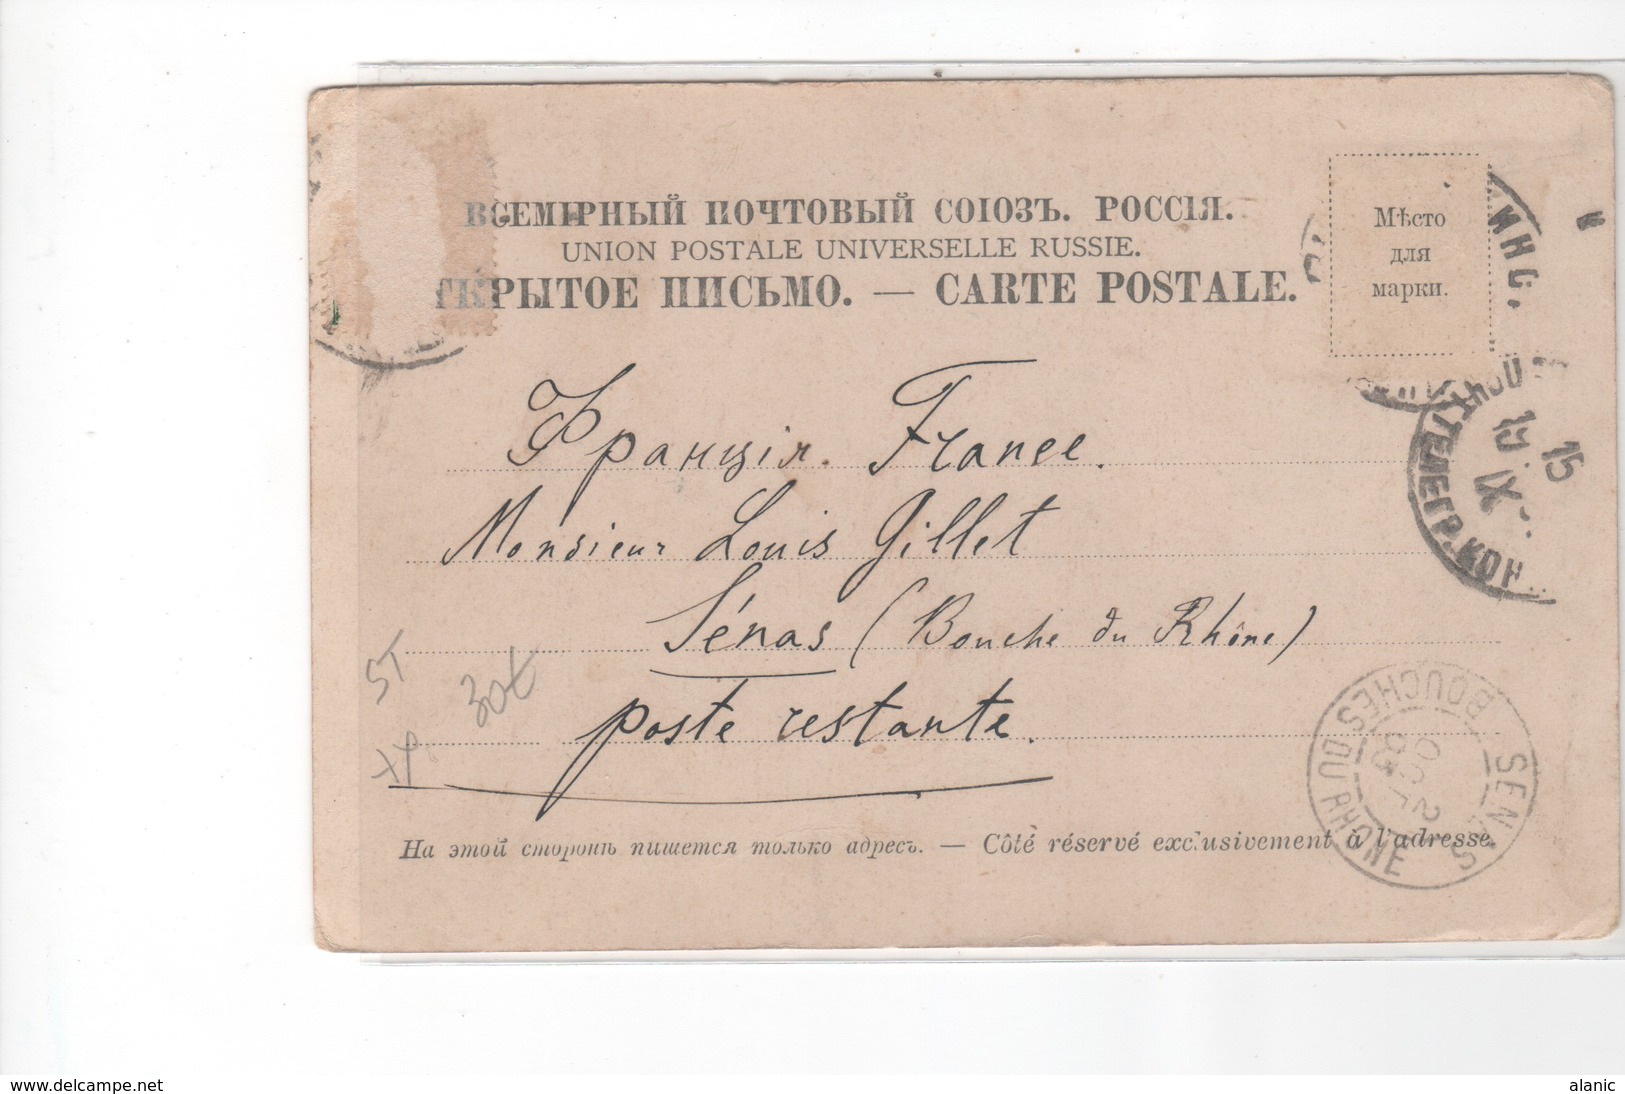 ВСЕМІРНЫЙ ПОЧТОВЫЙ СОЮЗЪ. РОССІЯ.
UNION POSTALE UNIVERSELLE RUSSIE.
ТКРЫТОЕ ПИСЬМО. — CARTE POSTALE.
Мѣсто
для
марки.
Франція. France.
Monsieur Louis Gillet
Sénas (Bouche du Rhône)
poste restante.
ST
30€
ТЕЛЕГР. КОН
15
IX
SENAS
BOUCHES DU RHONE
2 OCT
03
На этой сторонѣ пишется только адресъ. — Côté réservé exclusivement à l'adresse.
www.delcampe.net
alanic